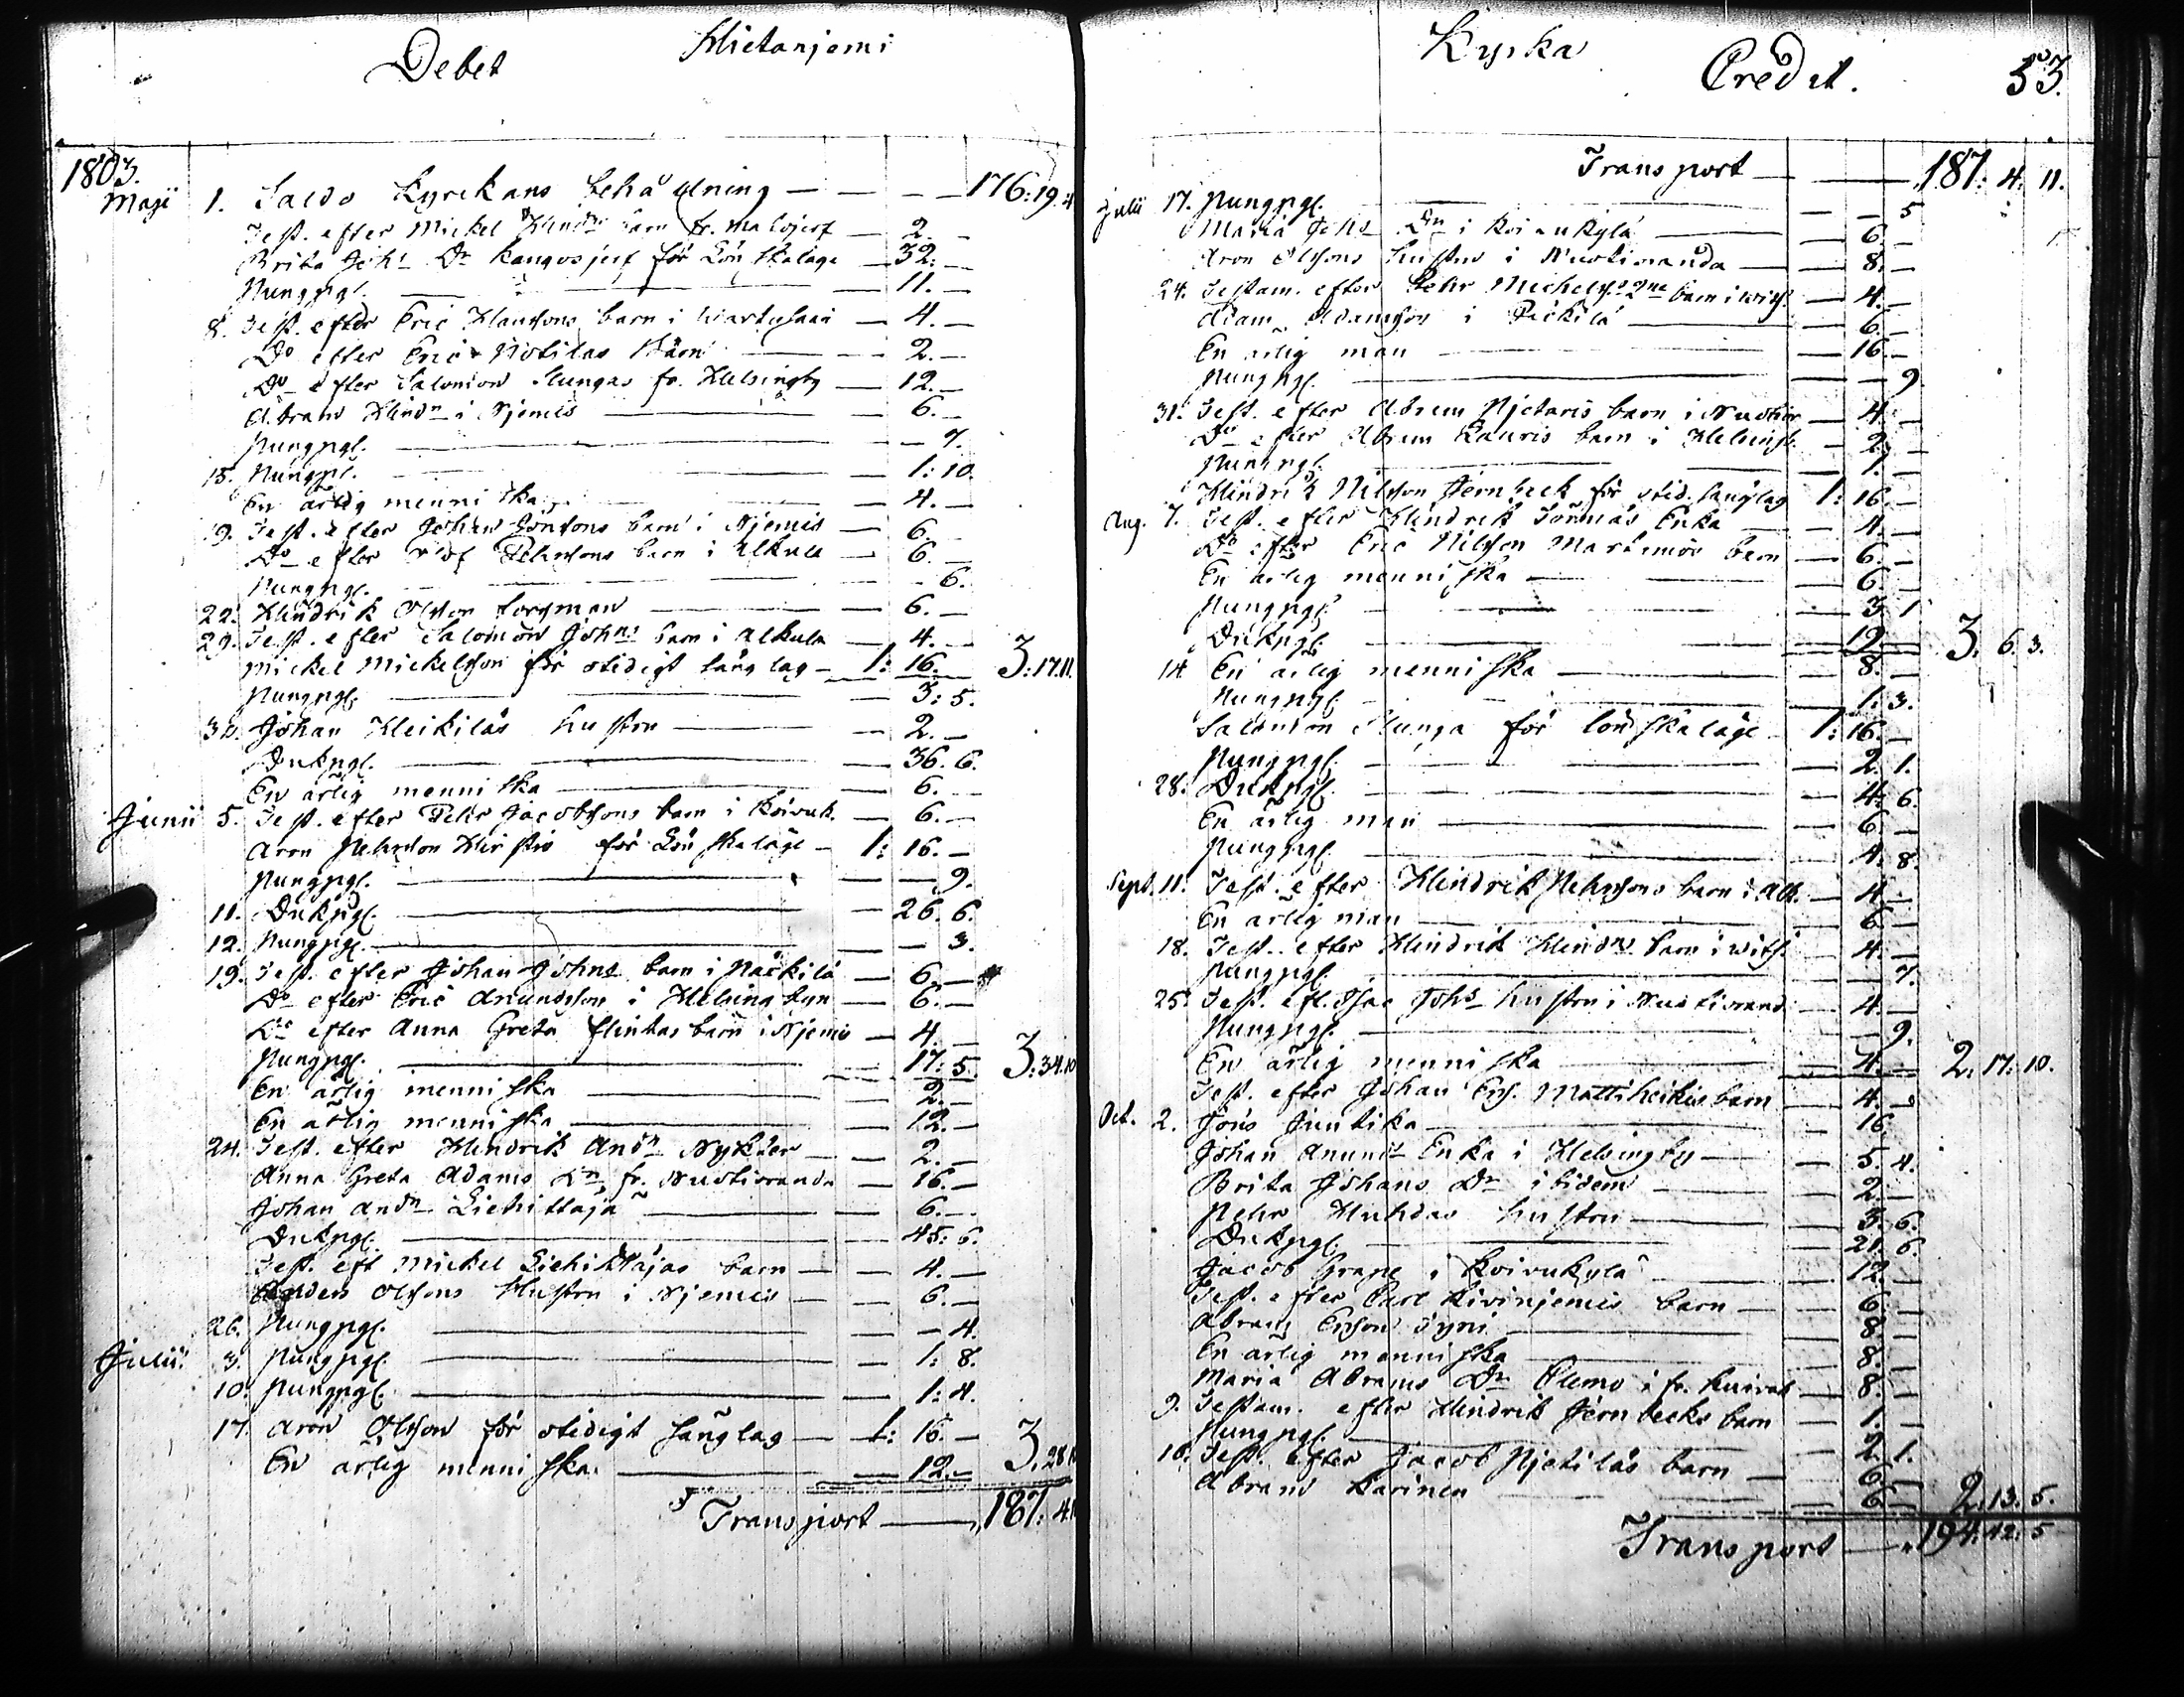 Debet Hietaniemi
1803.
Maji 1. Saldo Kyrckans behållning — 176:19.4
Test. efter Mickel Hindrs barn fr. Malojerf — 2.—
Brita Johs Dr Kangosjerf för Lönskaläge — 32.—
Pungpgr. — 11.—
8. Test. efter Eric Hanssons barn i — 4.—
Do efter Eric Notilas Barn — 2.—
Do efter Salomon Slungas fr. Helsingby — 12.—
Abram Hindrn i Njemis — 6.—
Pungpgr. — 7.
15. Pungpgr. — 1:10.
En ärlig menniska — 4.—
19. Test. efter Johan Jönsons barn i Njemis — 6.—
Do efter Olof Pehrssons barn i Alkula — 6.—
Pungpgr. — 6.
22. Hindrik Olsson — 6.—
29. Test. efter Salomon Johns barn i Alkula — 4.—
Mickel Mickelsson för otidigt sänglag — 1:16.— 3:17.11.
Pungpgr. — 3:5.
30. Johan Heikiläs hustru — 2.—
Dukpgr. — 36.6.
En ärlig menniska — 6.—
Junii 5. Test. efter Pehr Jacobssons barn i Koivuk. — 6.—
Aron Pehrsson för Lönskaläge — 1:16.—
Pungpgr. — 9.
11. Dukpgr. — 26.6.
12. Pungpgr. — 3.
19. Test. efter Johan Johns barn i Päckilä — 6.—
Do efter Eric Anundsson i Helsingbyn — 6.—
Do efter Anna Greta Flinkas barn i Njemis — 4.—
Pungpgr. — 17:5. 3:34.10
En ärlig menniska — 2.—
En ärlig menniska — 12.—
24. Test. efter Hendrik Andrn Nykter — 2.—
Anna Greta Adams Dr, fr. Nuotioranda — 16.—
Johan Andrn Liehittäjä — 6.—
Dukpgr. — 45:6.
Test. eft Mickel Liehittäjas barn — 4.—
Anders Olssons Hustru i Njemis — 6.—
26. Pungpgr. — 4.
Julii 3. Pungpgr. — 1:8.
10. Pungpgr. — 1:4.
17. Aron Olsson för otidigt sänglag — 1:16.—
En ärlig menniska — 12.— 3.28
Transport — 187:4.
Kyrka Credit. 53.
Transport — 187:4:11.
Julii 17. Pungpgr. — 5
Maria Johs Dr i Koivukylä — 6.—
Aron Olssons hustru i Nuotioranda — 8.—
24. Testam. efter Pehr Michels. barn i — 4.—
Adam Adamsson i Päckilä — 6.—
En ärlig man — 16.—
Pungpgr. — 9
31. Test. efter Abram Pjetaris barn i — 4.—
Do efter Abram Lauris barn i — 2.—
Pungpgr. — 1.—
Hindrik Nilsson Jernbeck för otid. sänglag 1:16.—
Aug. 7. Test. efter Hindrik Enka — 4.—
Do efter Eric Nilsson barn — 6.—
En ärlig menniska — 6.—
Pungpgr. — 3.1
Dukpgr. — 19.— 3.6.3.
14. En ärlig menniska — 8.—
Pungpgr. — 1:3.
Salomon Slunga för lönskaläge 1:16.—
Pungpgr. — 2.1.
28. Dukpgr. — 4:6.
En ärlig man — 6.—
Pungpgr. — 4.8.
Sept. 11. Test. efter Hindrik Pehrssons barn i Alk. — 4.—
En ärlig man — 6.—
18. Test. efter Hindrik Hindrs barn i — 4.—
Pungpgr. — 7.
25. Test. eft. Isac Johs hustru i Nuotiorand. — 4.—
Pungpgr. — 9.
En ärlig menniska — 4.— 2.17:10.
Test. efter Johan Ers. Mattiheikis barn — 4.—
Oct. 2. Jöns Juntika — 16.
Johan Anunds Enka i Helsingby — 5.4.
Brita Johans Dr ibidem — 2.—
Pehr Huhdas hustru — 5.6.
Dukpgr. — 21.6.
Jacob Grape i Koivukylä — 12.—
Test. efter Carl Kivinjemis barn — 6.—
Abram Ersson — 8.—
En ärlig menniska — 8.—
Maria Abrams Dr — 8.—
9. Testam. efter Hindrik Jernbecks barn — 1.—
Pungpgr. — 2.1.
16. Test. efter Jacob Pjetiläs barn — 6.—
Abram Karinen — 6.— 2:13.5.
Transport — 194:12:5